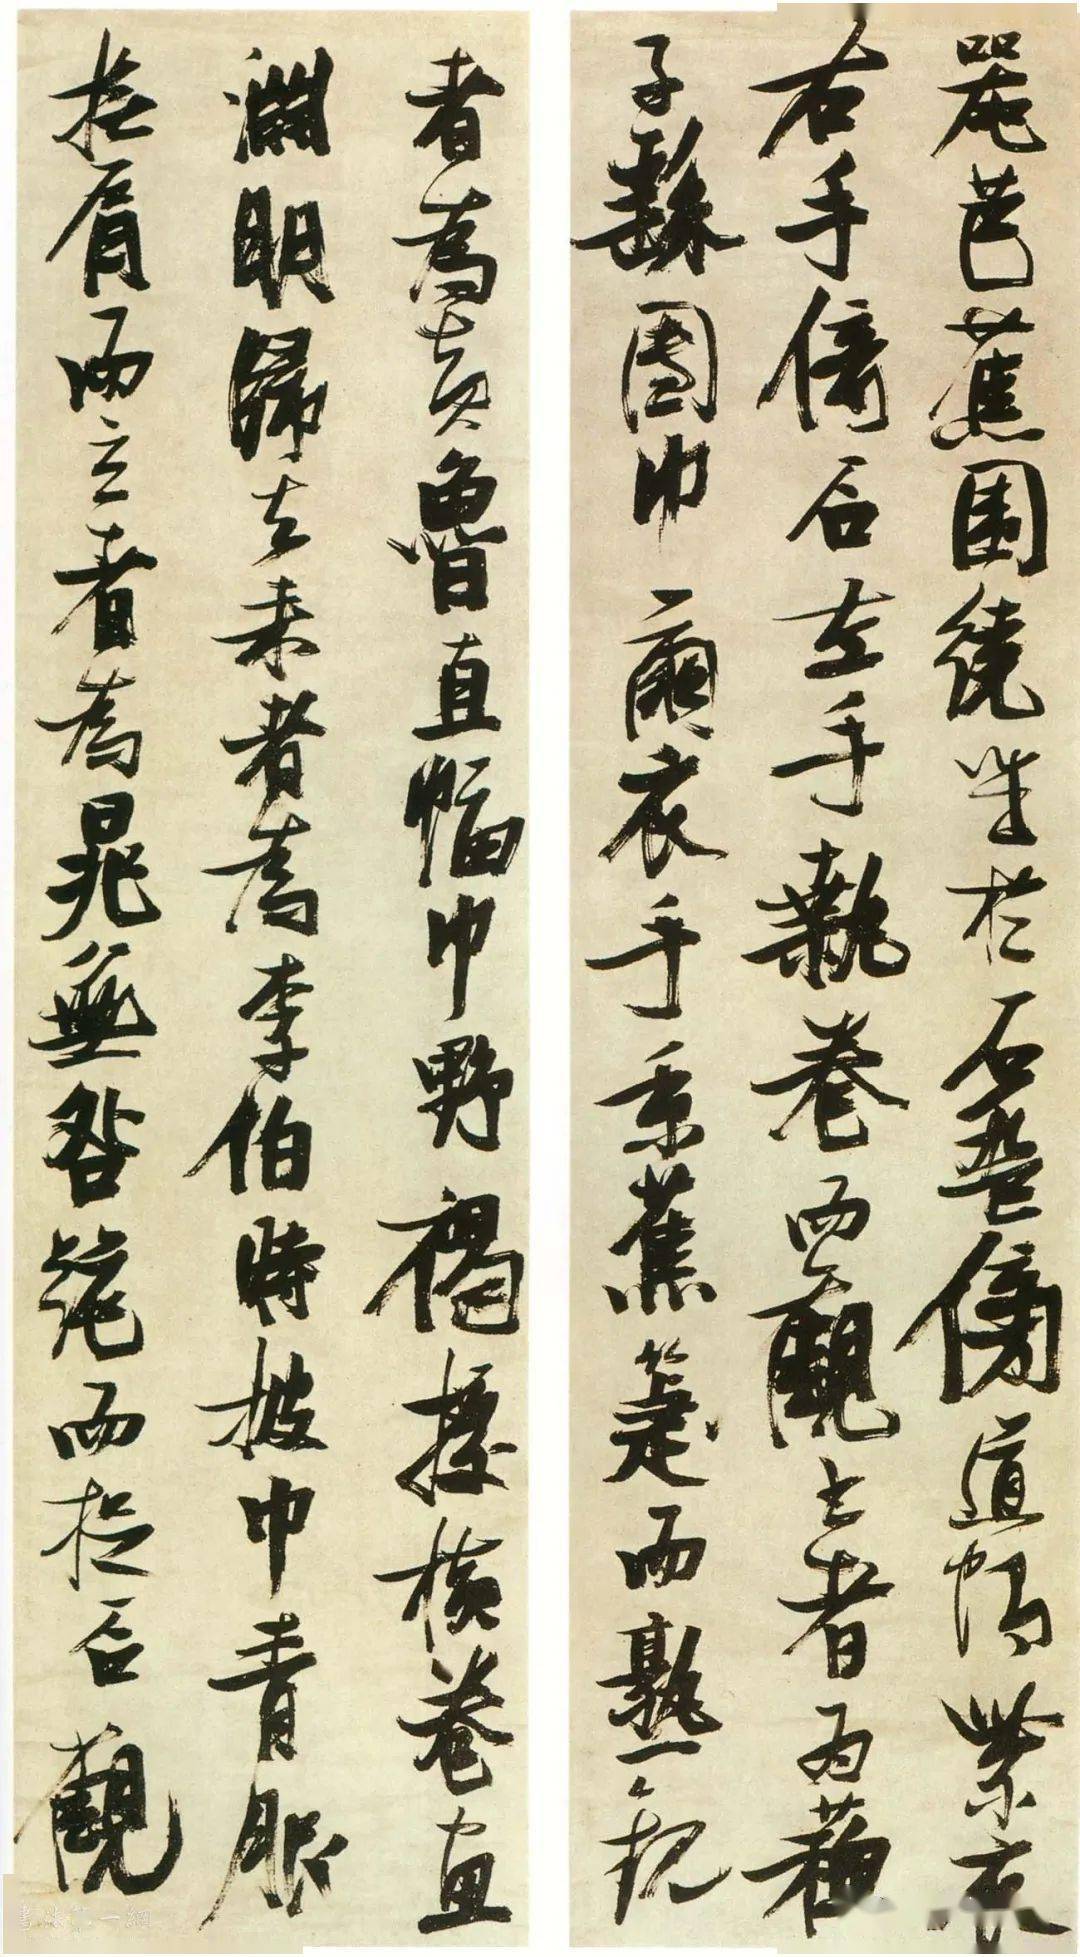 芭蕉圍繞坐於石盤傍道帽紫衣
右手倚石左手執卷而觀書者為蘇
子繇團巾繭衣手秉蕉箑而熟視
者為黃魯直幅巾野褐據橫卷畫
淵明歸去來者為李伯時披巾青服
撫肩而立者為晁無咎跪而捉石觀
書法第一網